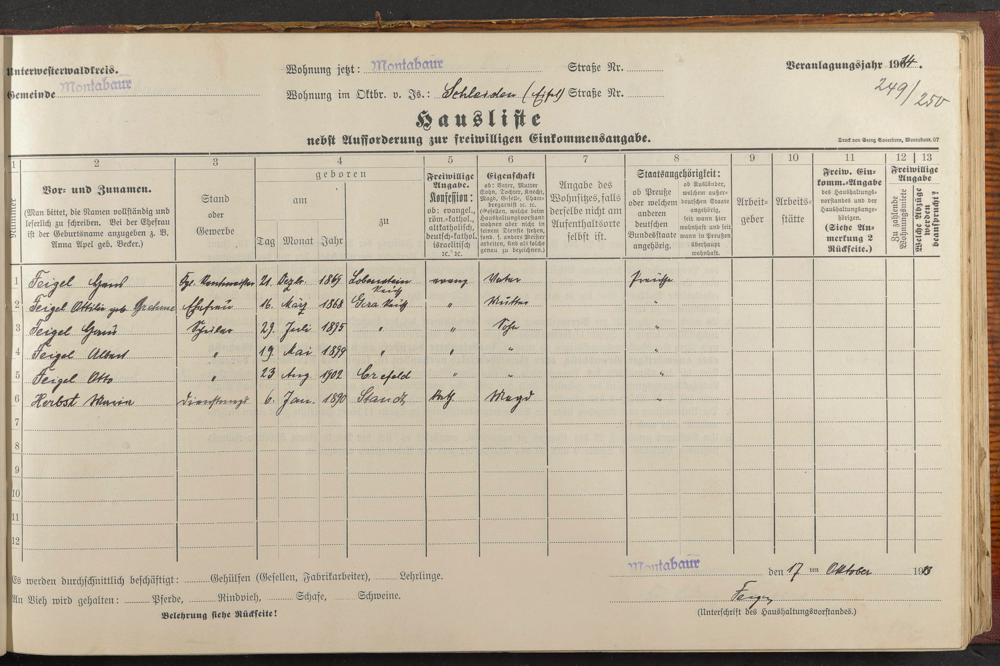 Unterwesterwaldkreis.
Gemeinde Montabaur
Wohnung jetzt: Montabaur Straße Nr.
Wohnung im Oktbr. v. Js.: Schleiden (Eifel) Straße Nr.
Veranlagungsjahr 1914.
249/250
Hausliste
nebst Aufforderung zur freiwilligen Einkommensangabe.
Druck von Georg Sauerborn, Montabaur. 07
1 2 3 4 5 6 7 8 9 10 11 12 13
Nummer
Vor- und Zunamen.
(Man bittet, die Namen vollständig und
leserlich zu schreiben. Bei der Ehefrau
ist der Geburtsname anzugeben z. B.
Anna Apel geb. Becker.)
Stand
oder
Gewerbe
geboren
am
zu
Tag Monat Jahr
Freiwillige
Angabe.
Konfession:
ob: evangel.,
röm.-kathol.,
altkatholisch,
deutsch-kathol.
israelitisch
ic. ic.
Eigenschaft
ob: Vater, Mutter
Sohn, Tochter, Knecht,
Magd, Geselle, Cham-
bergarnist ic. ic.
(Gesellen, welche beim
Haushaltungsvorstand
wohnen aber nicht in
seinem Dienste stehen,
sond. f. andere Meister
arbeiten, sind als solche
genau zu bezeichnen.)
Angabe des
Wohnsitzes, falls
derselbe nicht am
Aufenthaltsorte
selbst ist.
Staatsangehörigkeit:
ob Preuße
oder welchem
anderen
deutschen
Bundesstaate
angehörig.
ob Ausländer,
welchem außer-
deutschen Staate
angehörig,
seit wann hier
wohnhaft und seit
wann in Preußen
überhaupt
wohnhaft.
Arbeit-
geber
Arbeits-
stätte
Freiw. Ein-
komm.-Angabe
des Haushaltungs-
vorstandes und der
Haushaltungsange-
hörigen.
(Siehe An-
merkung 2
Rückseite.)
Freiwillige
Angabe
Zu zahlende
Wohnungsmiete
Welche Abzüge
werden
beansprucht?
1 Feigel Hans Kgl. Rentmeister 21. Dezbr. 1864 Lobenstein evang Vater Preuße
2 Feigel Ottilie geb Ehefrau 16. März 1868 Gera " Mutter "
3 Feigel Hans Schüler 29. Juli 1895 " " Sohn "
4 Feigel Albert " 19. Mai 1899 " " " "
5 Feigel Otto " 23 Aug 1902 Crefeld " " "
6 Herbst Maria Dienstmagd 6. Jan. 1890 kath. Magd "
7
8
9
10
11
12
Es werden durchschnittlich beschäftigt: Gehülfen (Gesellen, Fabrikarbeiter), Lehrlinge.
An Vieh wird gehalten: Pferde, Rindvieh, Schafe, Schweine.
Belehrung siehe Rückseite!
Montabaur den 17 ten Oktober 1913
Feigel
(Unterschrift des Haushaltungsvorstandes.)